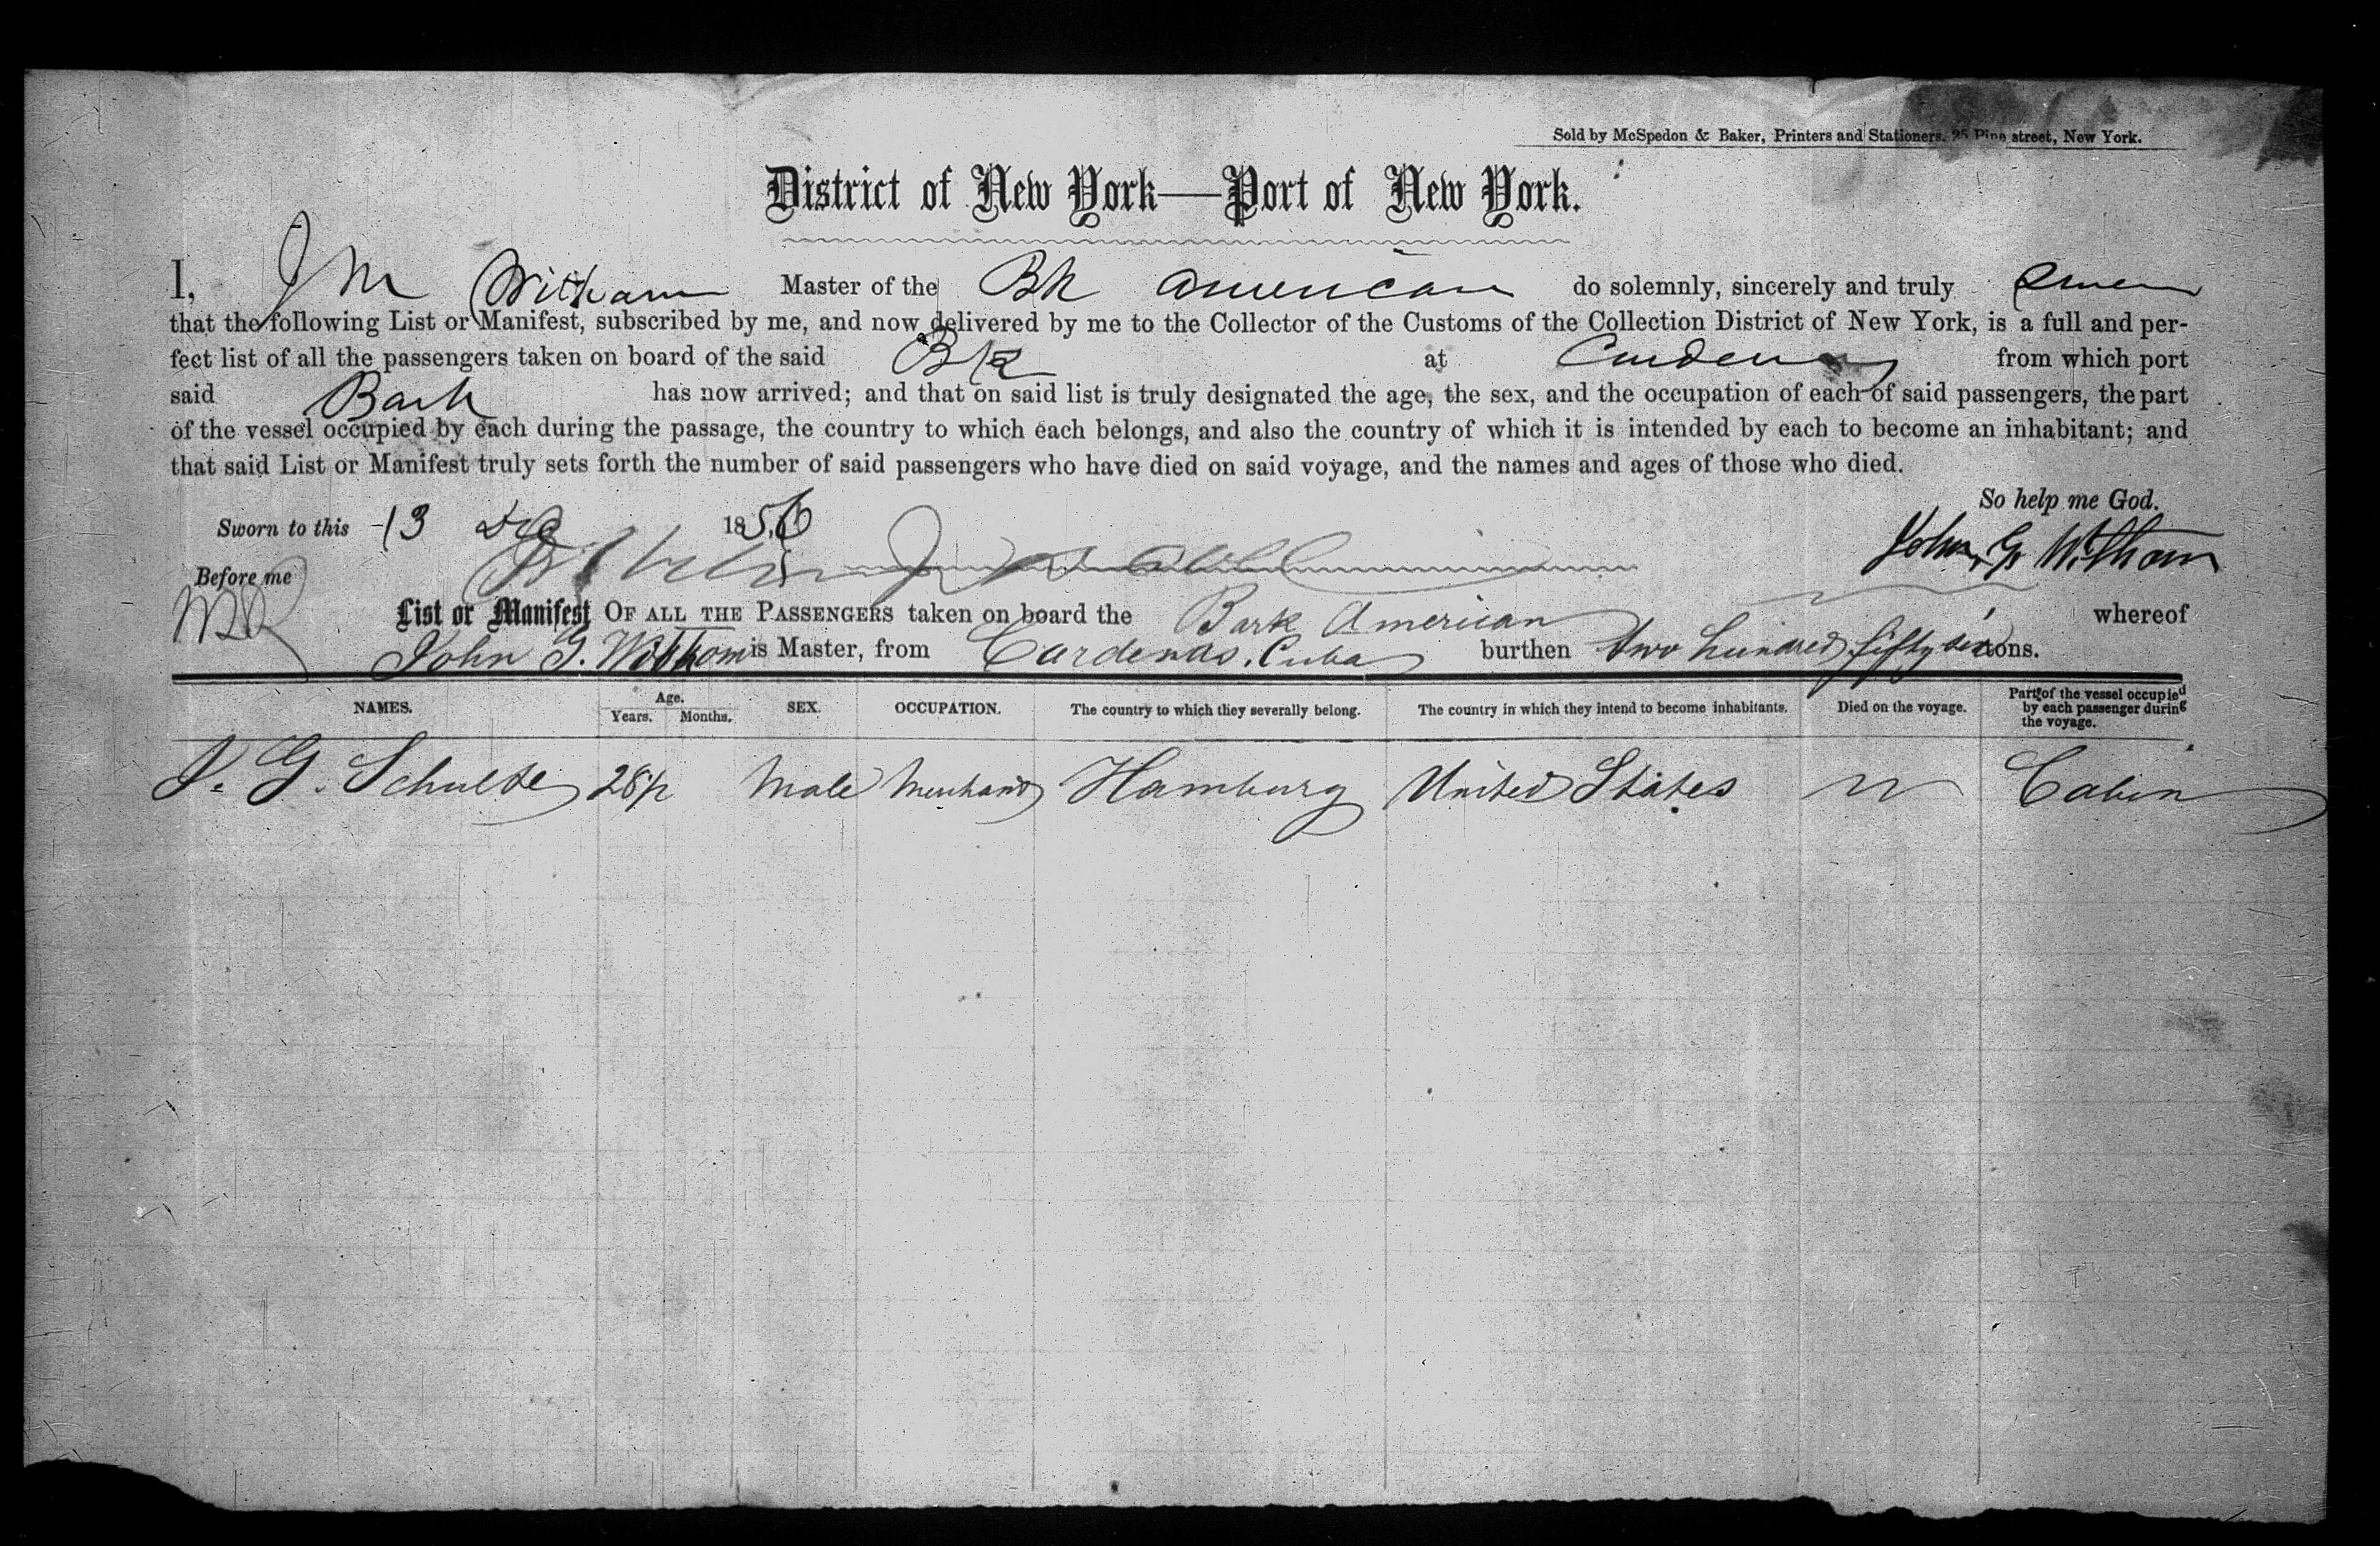 Sold by McSpedon & Baker, Printers and Stationers, 25 Pine street, New York.
District of New York—Port of New York.
I, J M Witham Master of the Bk American do solemnly, sincerely and truly swear
that the following List or Manifest, subscribed by me, and now delivered by me to the Collector of the Customs of the Collection District of New York, is a full and per-
fect list of all the passengers taken on board of the said Bk at Cardenas from which port
said Bark has now arrived; and that on said list is truly designated the age, the sex, and the occupation of each of said passengers, the part
of the vessel occupied by each during the passage, the country to which each belongs, and also the country of which it is intended by each to become an inhabitant; and
that said List or Manifest truly sets forth the number of said passengers who have died on said voyage, and the names and ages of those who died.
So help me God.
Sworn to this 13 Dec 1856
John G. Witham
Before me
List or Manifest OF ALL THE PASSENGERS taken on board the Bark American whereof
John G. Witham is Master, from Cardenas, Cuba burthen two hundred fifty six tons.
NAMES. Age. Years. Months. SEX. OCCUPATION. The country to which they severally belong. The country in which they intend to become inhabitants. Died on the voyage. Part of the vessel occupied by each passenger during the voyage.
J. G. Schulte 28 Male Merchant Hamburg United States Cabin